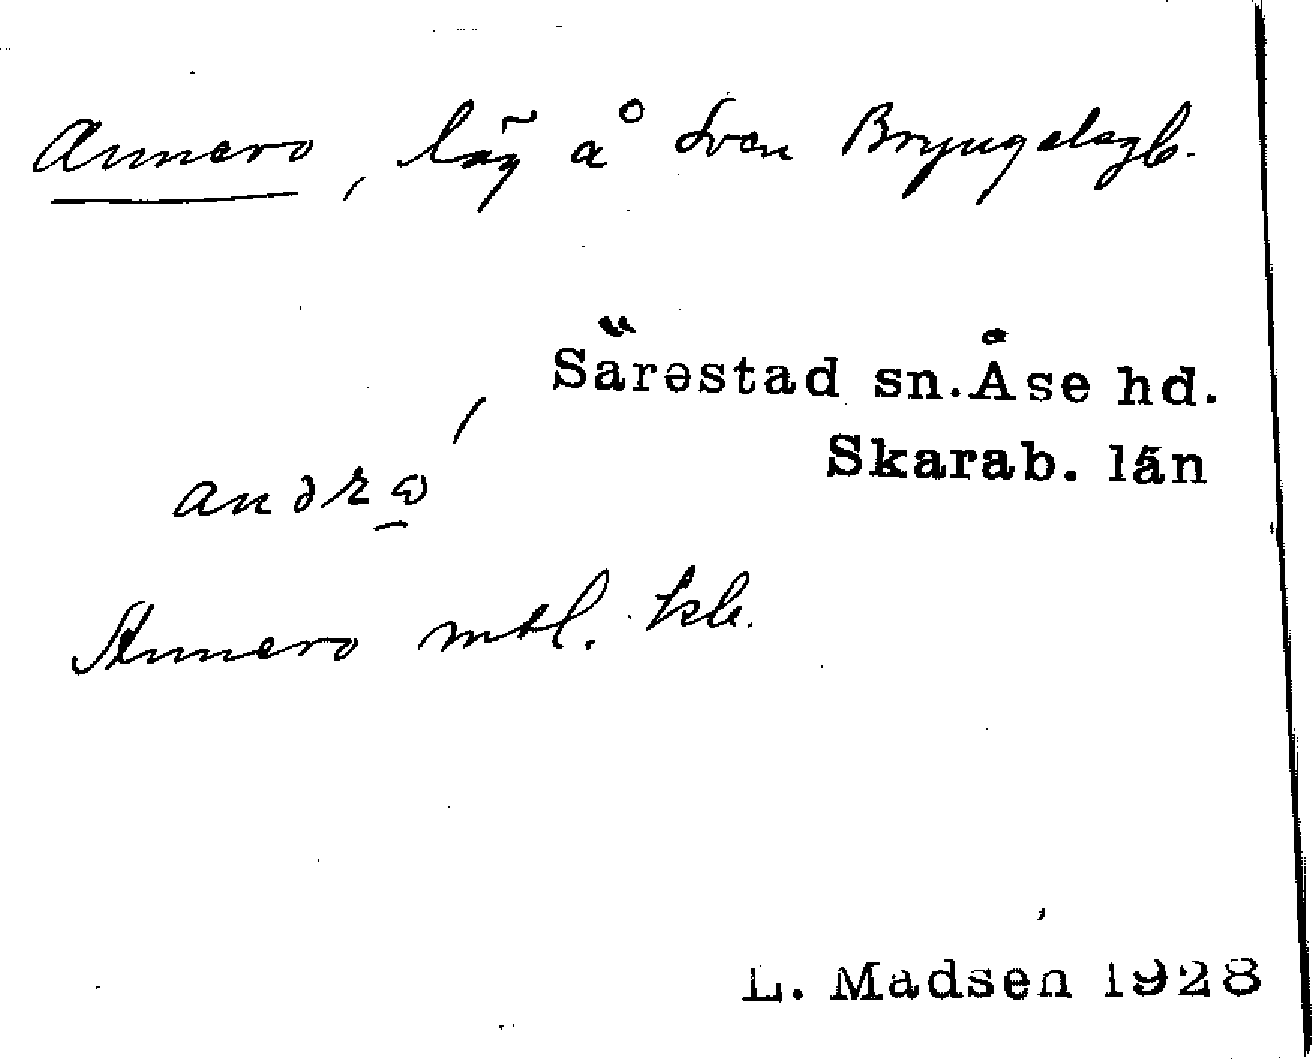 Annero, läg å Sven Bryngelsgb.
Särəstad sn. Åse hd.
Skarab. län
Annero mtl. kb.
L. Madsen 1928